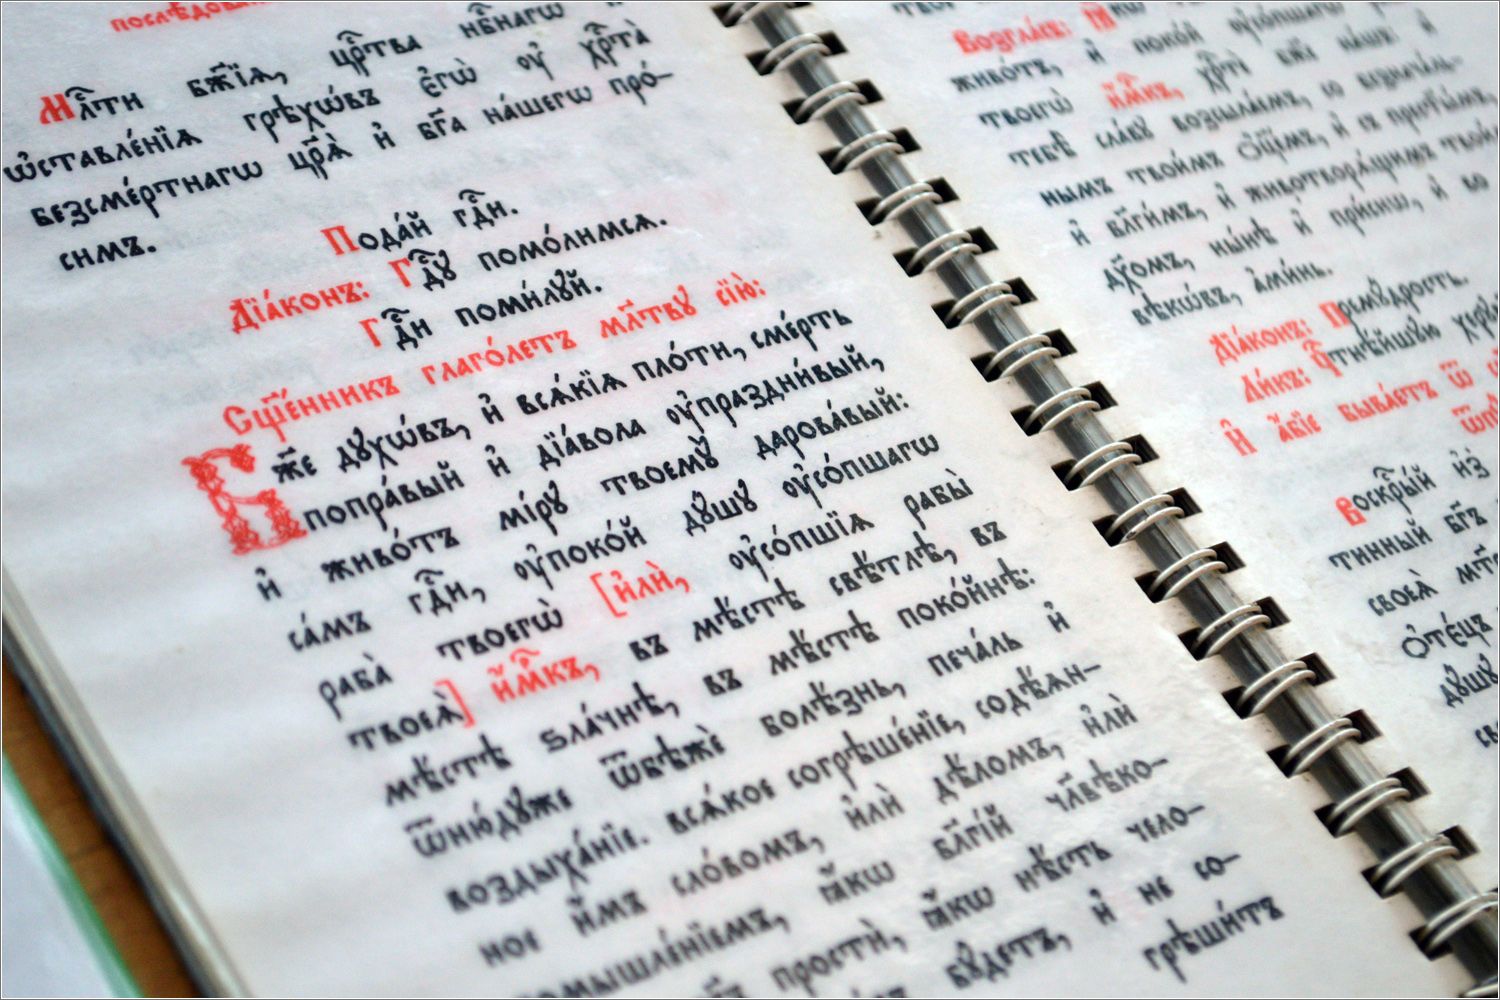 Мл҃ти бж҃їѧ, црⷭ҇тва нбⷭ҇нагѡ и
ѡ҆ставле́нїѧ грѣхѡ́въ є҆гѡ̀ ᲂу҆ хрⷭ҇та̀
безсме́ртнагѡ цр҃ѧ̀ и҆ бг҃а на́шегѡ про́-
симъ.
Пода́й гдⷭ҇и.
Дїа́конъ: Гдⷭ҇ꙋ помо́лимсѧ.
Гдⷭ҇и поми́лꙋй.
Сщ҃е́нникъ глаго́летъ мл҃твꙋ сїю̀:
Бж҃е дꙋхѡ́въ, и҆ всѧ́кїѧ пло́ти, сме́рть
попра́вый и҆ дїа́вола ᲂу҆праздни́вый,
и҆ живо́тъ мі́рꙋ твоемꙋ̀ дарова́вый:
са́мъ гдⷭ҇и, ᲂу҆поко́й дꙋ́шꙋ ᲂу҆со́пшагѡ
раба̀ твоегѡ̀ [и҆лѝ, ᲂу҆со́пшїѧ рабы̀
твоеѧ̀] и҆́м҃къ, въ мѣ́стѣ свѣ́тлѣ, въ
мѣ́стѣ ѕла́чнѣ, въ мѣ́стѣ поко́йнѣ:
ѿню́дꙋже ѿбѣжѐ болѣ́знь, печа́ль и҆
воздыха́нїе. всѧ́кое согрѣше́нїе, содѣ́ѧн-
ное и҆́мъ сло́вомъ, и҆лѝ дѣ́ломъ, и҆лѝ
помышле́нїемъ, ꙗ҆́кѡ бл҃гі́й чл҃вѣко-
простѝ, ꙗ҆́кѡ нѣ́сть чело-
бꙋ́детъ, и҆ не со-
грѣши́тъ
Возгла́съ:
живо́тъ, и҆ поко́й ᲂу҆со́пшагѡ
твоегѡ̀ и҆́м҃къ, хрⷭ҇тѐ бж҃е на́шъ: и҆
тебѣ̀ сла́вꙋ возсыла́емъ, со безнача́ль-
нымъ твои́мъ ѻ҆ц҃е́мъ, и҆ съ прест҃ы́мъ,
и҆ бл҃ги́мъ, и҆ животворѧ́щимъ твои́мъ
дх҃омъ, ны́нѣ и҆ при́снѡ, и҆ во
вѣ́ки вѣкѡ́въ, а҆ми́нь.
Дїа́конъ: Премꙋ́дрость.
Ли́къ: Чⷭ҇тнѣ́йшꙋю
И҆ а҆́бїе быва́етъ ѿ
Воскр҃сы́й и҆з̾
тинный бг҃ъ
своеѧ̀
Ѻ҆те́цъ
дꙋ́шꙋ